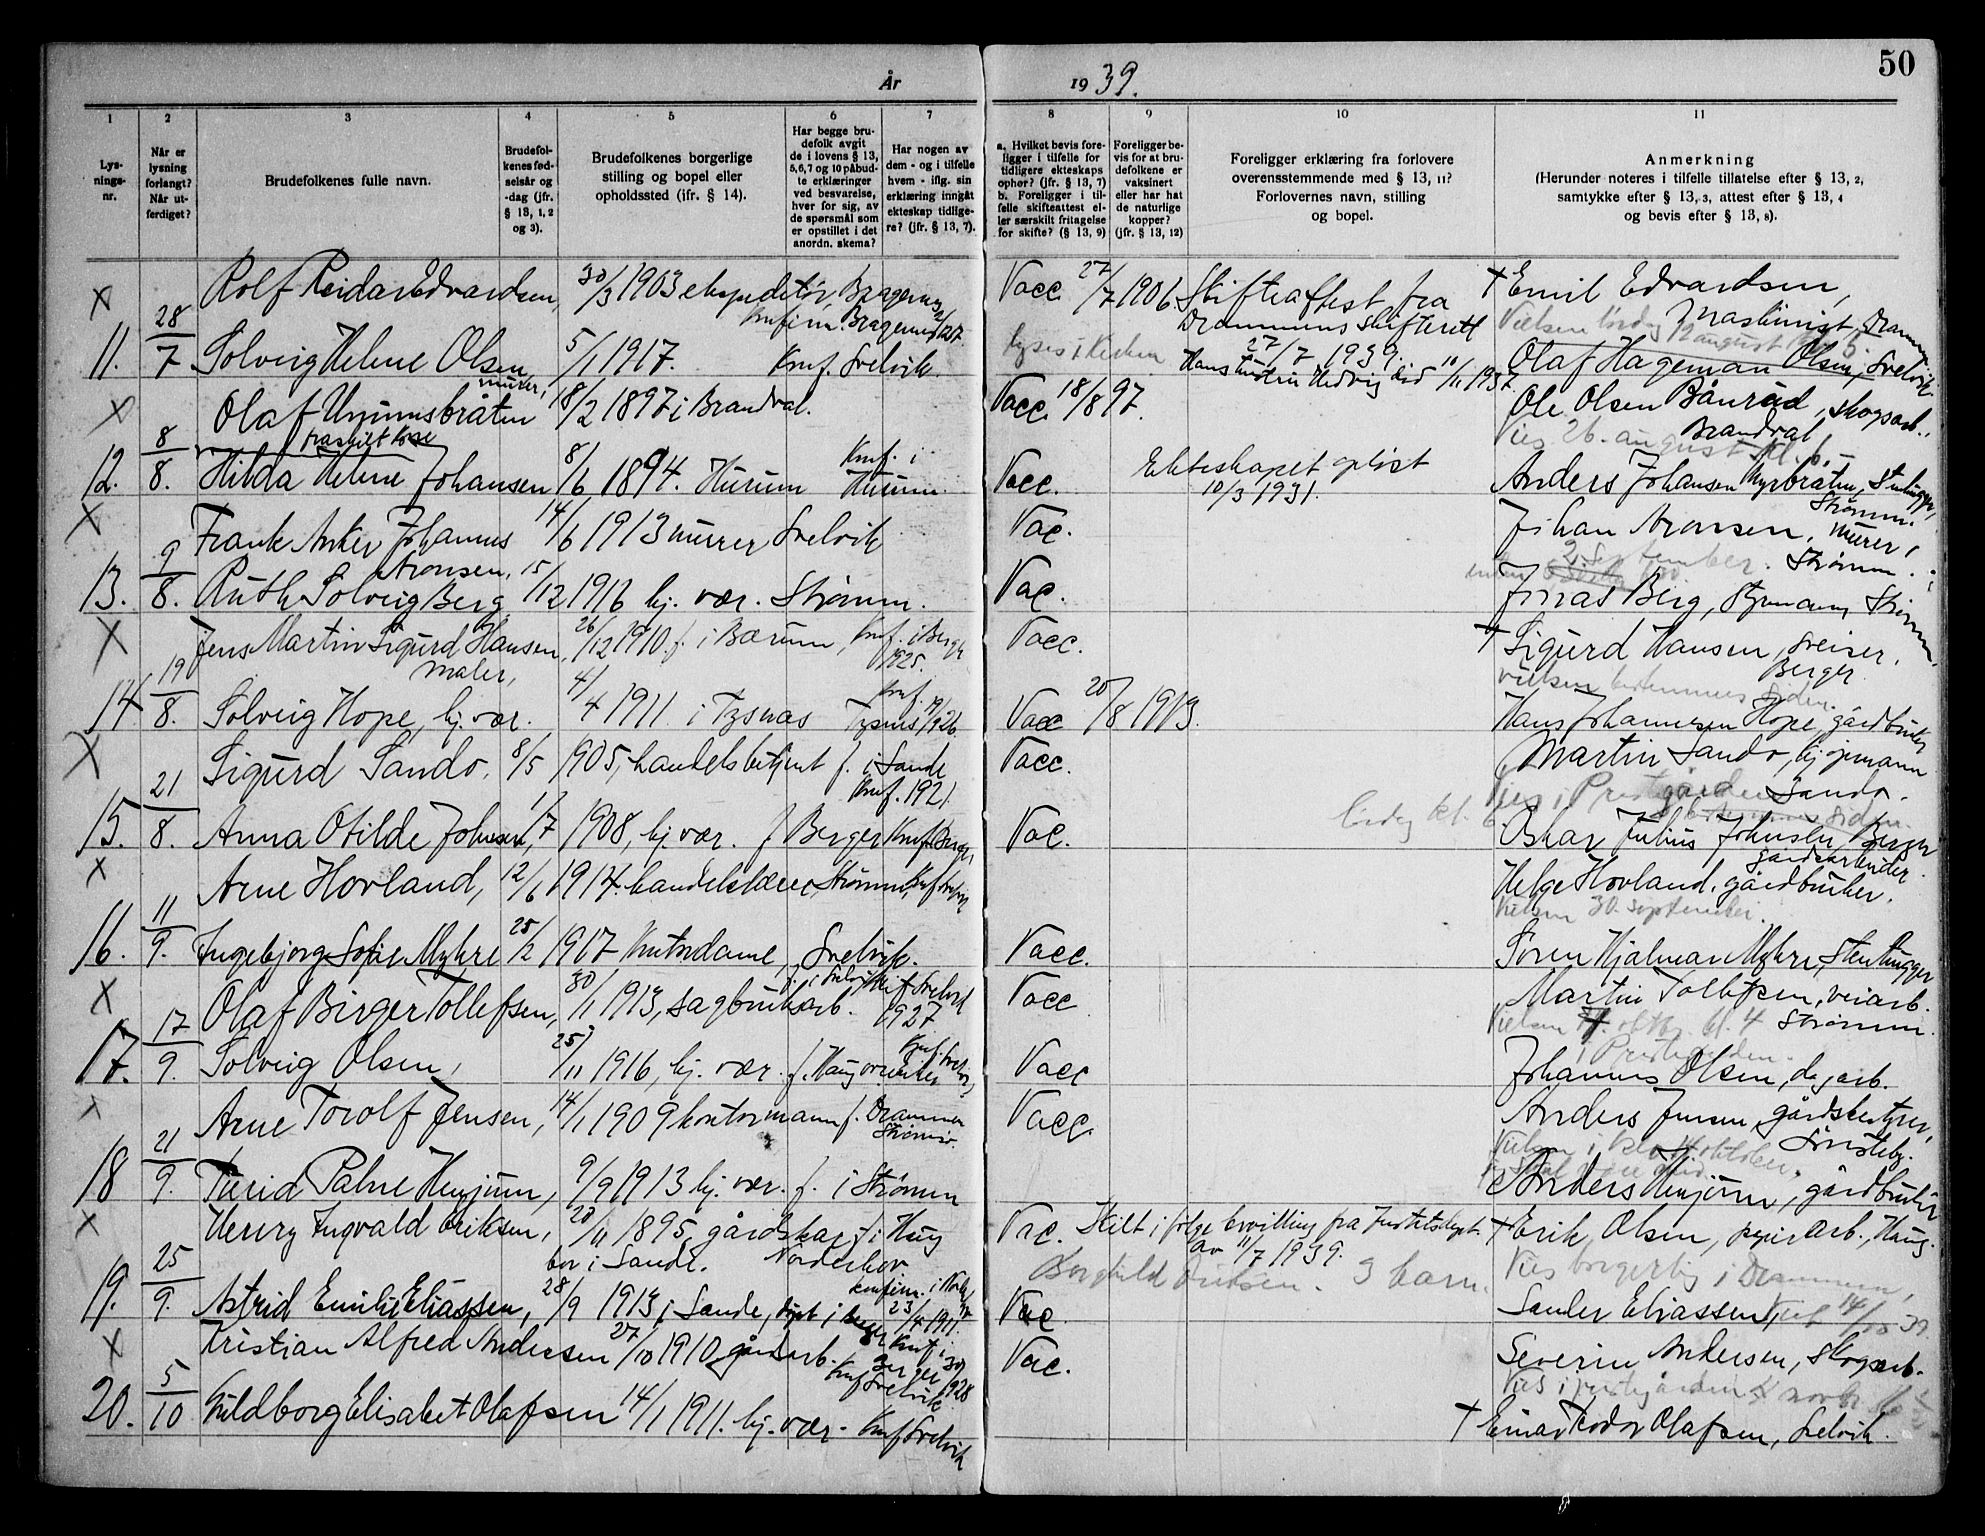 50
År 1939.
1 2 3 4 5 6 7 8 9 10 11
Lys-
nings-
nr.
Når er
lysning
forlangt?
Når ut-
ferdiget?
Brudefolkenes fulle navn.
Brudefol-
kenes fød-
selsår og
-dag (jfr.
§ 13, 1, 2
og 3).
Brudefolkenes borgerlige
stilling og bopel eller
opholdssted (ifr. § 14).
Har begge bru-
defolk avgit
de i lovens § 13,
5,6,7 og 10 påbud-
te erklæringer
ved besvarelse,
hver for sig, av
de spørsmål som
er opstillet i det
anordn. skema?
Har nogen av
dem - og i tilfelle
hvem - iflg. sin
erklæring inngåt
ekteskap tidlige-
re? (jfr. § 13, 7).
a. Hvilket bevis fore-
ligger i tilfelle for
tidligere ekteskaps
ophør? (jfr. § 13, 7)
b. Foreligger i til-
felle skifteattest el-
ler særskilt fritagelse
for skifte? (§ 13, 9)
Foreligger be-
vis for at bru-
defolkene er
vaksinert
eller har hat
de naturlige
kopper?
(jfr. § 13, 12)
Foreligger erklæring fra forlovere
overensstemmende med § 13, 11?
Forlovernes navn, stilling
og bopel.
Anmerkning
(Herunder noteres i tilfelle tillatelse efter § 13, 2,
samtykke efter § 13, 3, attest efter § 13, 4
og bevis efter § 13, 8).
x Rolf Reidar Edvardsen, 30/3 1903 ekspeditør, Vacc 27/7 1906. Skifteattest fra + Emil Edvardsen,
Drammens skifterett maskinist, Drammen
11. 28/7 Solveig Helene Olsen 5/1 1917. Knf. Svelvik. lyses i kirken 27/7 1939. Olaf Hageman Olsen, Svelvik
Hans hustru Hedvig død 10/11 1937
x Olaf murer, 18/2 1897 i Brandval. Vacc. 18/8 97. Ole Olsen Bånrud, skogsarb.,
Brandval
Vies 26. august kl. 6.
12. 8/8. fraskilt Hilda Helene Johansen 8/6 1894. Hurum Knf. i Hurum. Vacc. Ekteskapet opløst 10/3 1931. Anders Johansen Myrbråten, Strømm.
x Frank Anker Johannes Aronsen, 14/6 1913 murer Svelvik Vac. Johan Aronsen, murer,
Strømm.
2 september.
13. 9/8. Ruth Solveig Berg 15/12 1916 hj. vær. Strømm. Vac. Jonas Berg, Strømm,
x Jens Martin Sigurd Hansen, maler, 26/12 1910. f. i Bærum, Knf. i Berger 1925. Vacc. + Sigurd Hansen, sveiser,
Berger.
vielsen bestemmes siden.
14. 19/8. Solveig Hope, hj. vær. 4/4 1911. i Tysnas Knf. Vacc 20/8 1913. Hans Johannesen Hope, gårdbruker
x Sigurd Sando, 8/5 1905, handelsbetjent f. i Sande Knf. 1921. Vacc. Martin Sando, kjøpmann
Sando.
lørdag kl. 6.
15. 21/8. Anna Otilde Johnsen, 1/7 1908, hj. vær. f Berger Knf. Berger Vac. Oskar Julius Johnsen, Berger
gårdsarbeider.
x Arne Hovland, 12/6 1914. Strømm, Helge Hovland, gårdbruker.
Vielsen 30. september.
16. 11/9. Ingebjorg Sofie Myhre 25/2 1917 kontordame, Svelvik. Vacc. Søren Hjalmar Myhre, Stenhugger
x Olaf Birger Tollefsen, 30/1 1913, sagbruksarb. f. i Svelvik Knf. Svelvik 1927 Vacc Martin Tollefsen, veiarb.
Strømm.
Vielsen oktbr. kl. 4
i Prestegården.
17. 17/9. Solveig Olsen, 25/11 1916, hj. vær. f. Vacc Johannes Olsen, dagarb.
x Arne Torolf Jensen, 14/1 1909 kontormann f. Drammen Strømsø. Vacc. Anders Jensen, gårdsbestyrer,
18 21/9. Turid Palne Henjum, 9/9 1913 hj. vær. f. i Strømm Anders Henjum, gårdbruker
x Henry Ingvald Eriksen, 20/11 1895, f. i Haug Norderhov Vac. Skilt i følge bevilling fra Justitsdept. + Erik Olsen, papirarb., Haug.
bor i Sande. av 11/7 1939.
3 barn. Vies borgerlig i Drammen,
19. 25/9. Astrid Emilie Eliassen, 28/9 1913 i Sande, døpt i Berger Vac Sander Eliassen, Viet 14/10 39.
x Kristian Alfred Andersen 27/10 1910 gårdsarb. Knf. i Berger Vac. Severin Andersen, Skogsarb.
Vies i prestegården 4 novbr.
20. 5/10 Hildborg Elisabet Olafsen 14/1 1911. hj. vær. Knf Svelvik + Einar Teodor Olafsen, Svelvik.